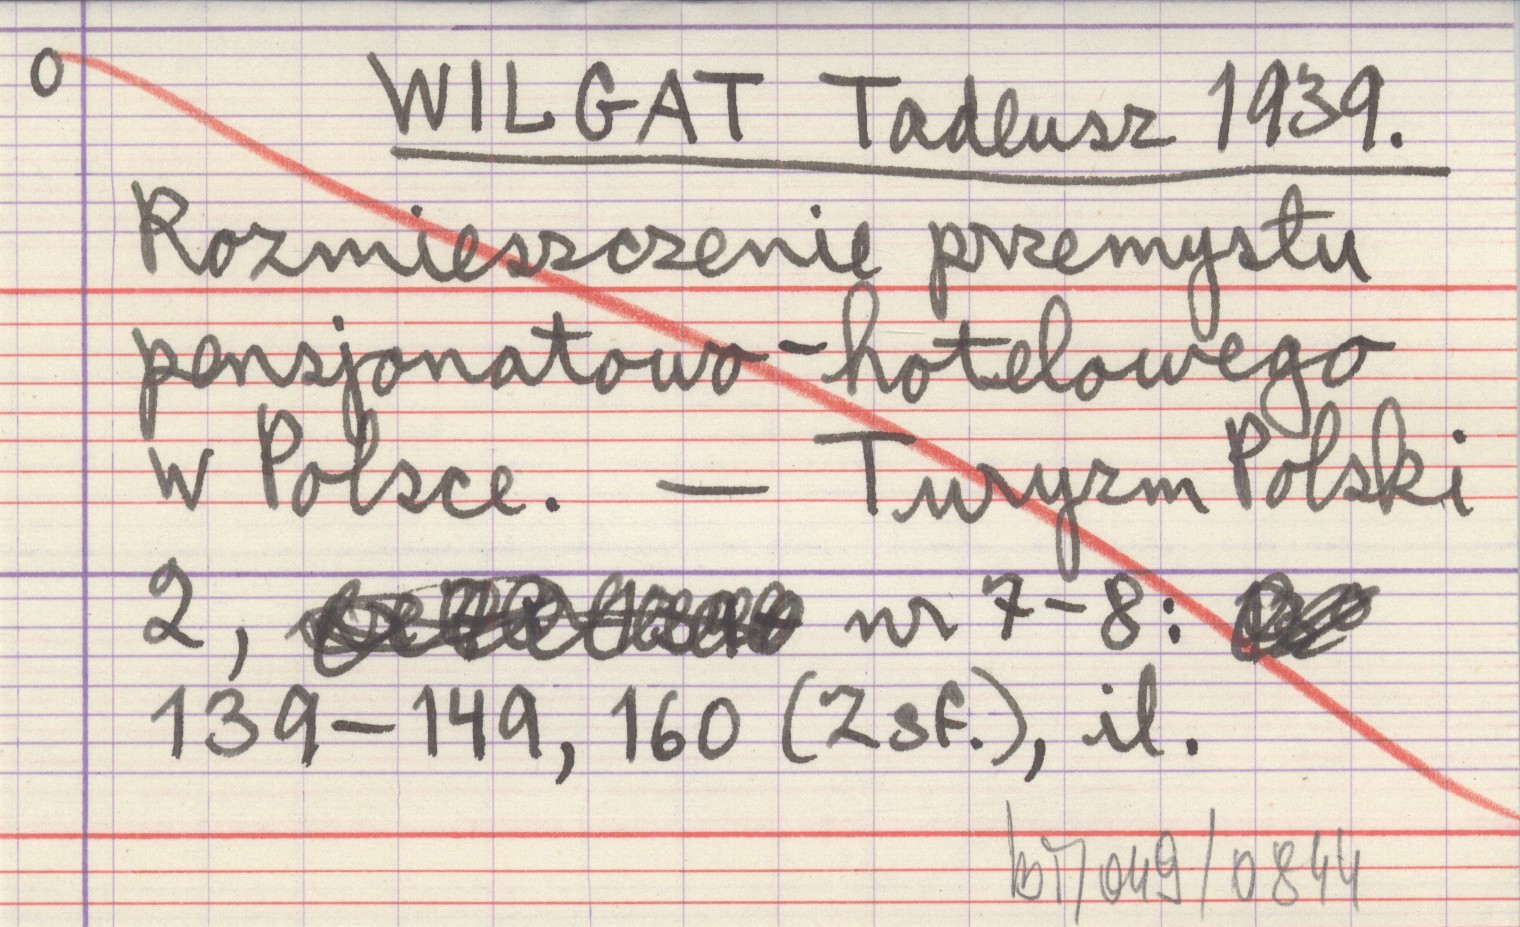 O WILGAT Tadeusz 1939.
Rozmieszczenie przemysłu
pensjonatowo-hotelowego
w Polsce. — Turyzm Polski
2, nr 7-8:
139-149, 160 (Zsf.), il.
049/0844